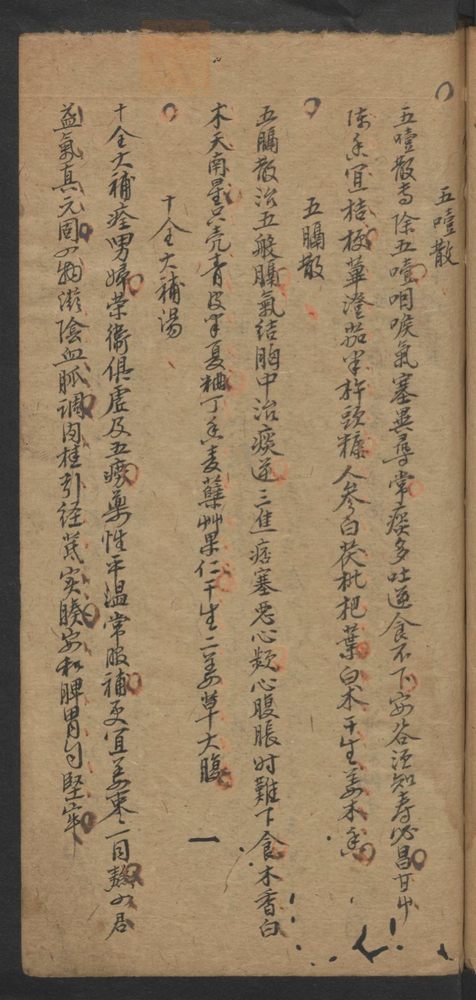 五噎散
五噎散專除五噎咽喉氣塞異尋常痰多吐逆食不下安谷須知壽必昌甘艸
陳皮宜桔梗蓽澄茄半杵頭糠人參白茯枇杷葉白朮干生姜木香
五膈散
五膈散治五般膈氣結胸中治痰逆三焦痞塞悪心疑心腹脹时難下食木香白
朮天南星只壳青皮半夏 丁香麦蘖艸果仁干生二姜草大腹
十全大補湯
十全大補 男婦荣衛俱虚及五 藥性平温常服補更宜姜棗一同 四君
益氣真元固四物滋陰血脈調肉桂引経芪实腠安和脾胃自堅牢